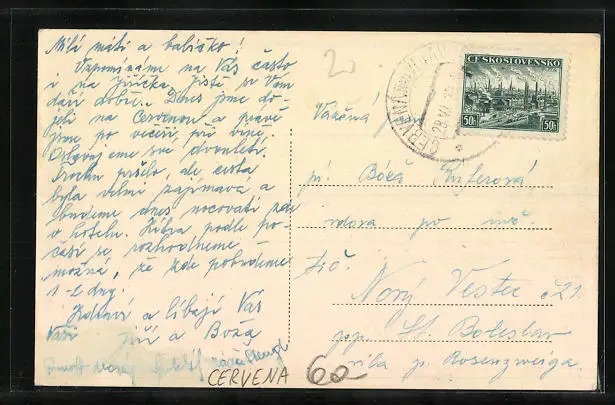 Milí máti a babičko!
Vzpomínáme na Vás často
i na Jiříčka. Jistě se Vám
daří dobře. Dnes jsme do-
jeli na Červenou a právě
jsme po večeři při víně.
Oslavujeme své dvouletí.
Trochu pršelo, ale cesta
byla velmi zajímavá a
budeme dnes nocovati zde
v hotelu. Zítra podle po-
časí se rozhodneme -
možná, že zde pobudeme
1-2 dny.
Zdraví a líbají Vás
Vaši Jiří a Boža
2
ČESKOSLOVENSKO
50h 50h
Vážená paní
pí. Boža
vdova po
Nový Vestec č 21.
p. St. Boleslav
vila p. Rosenzweiga.
CERVENA 60